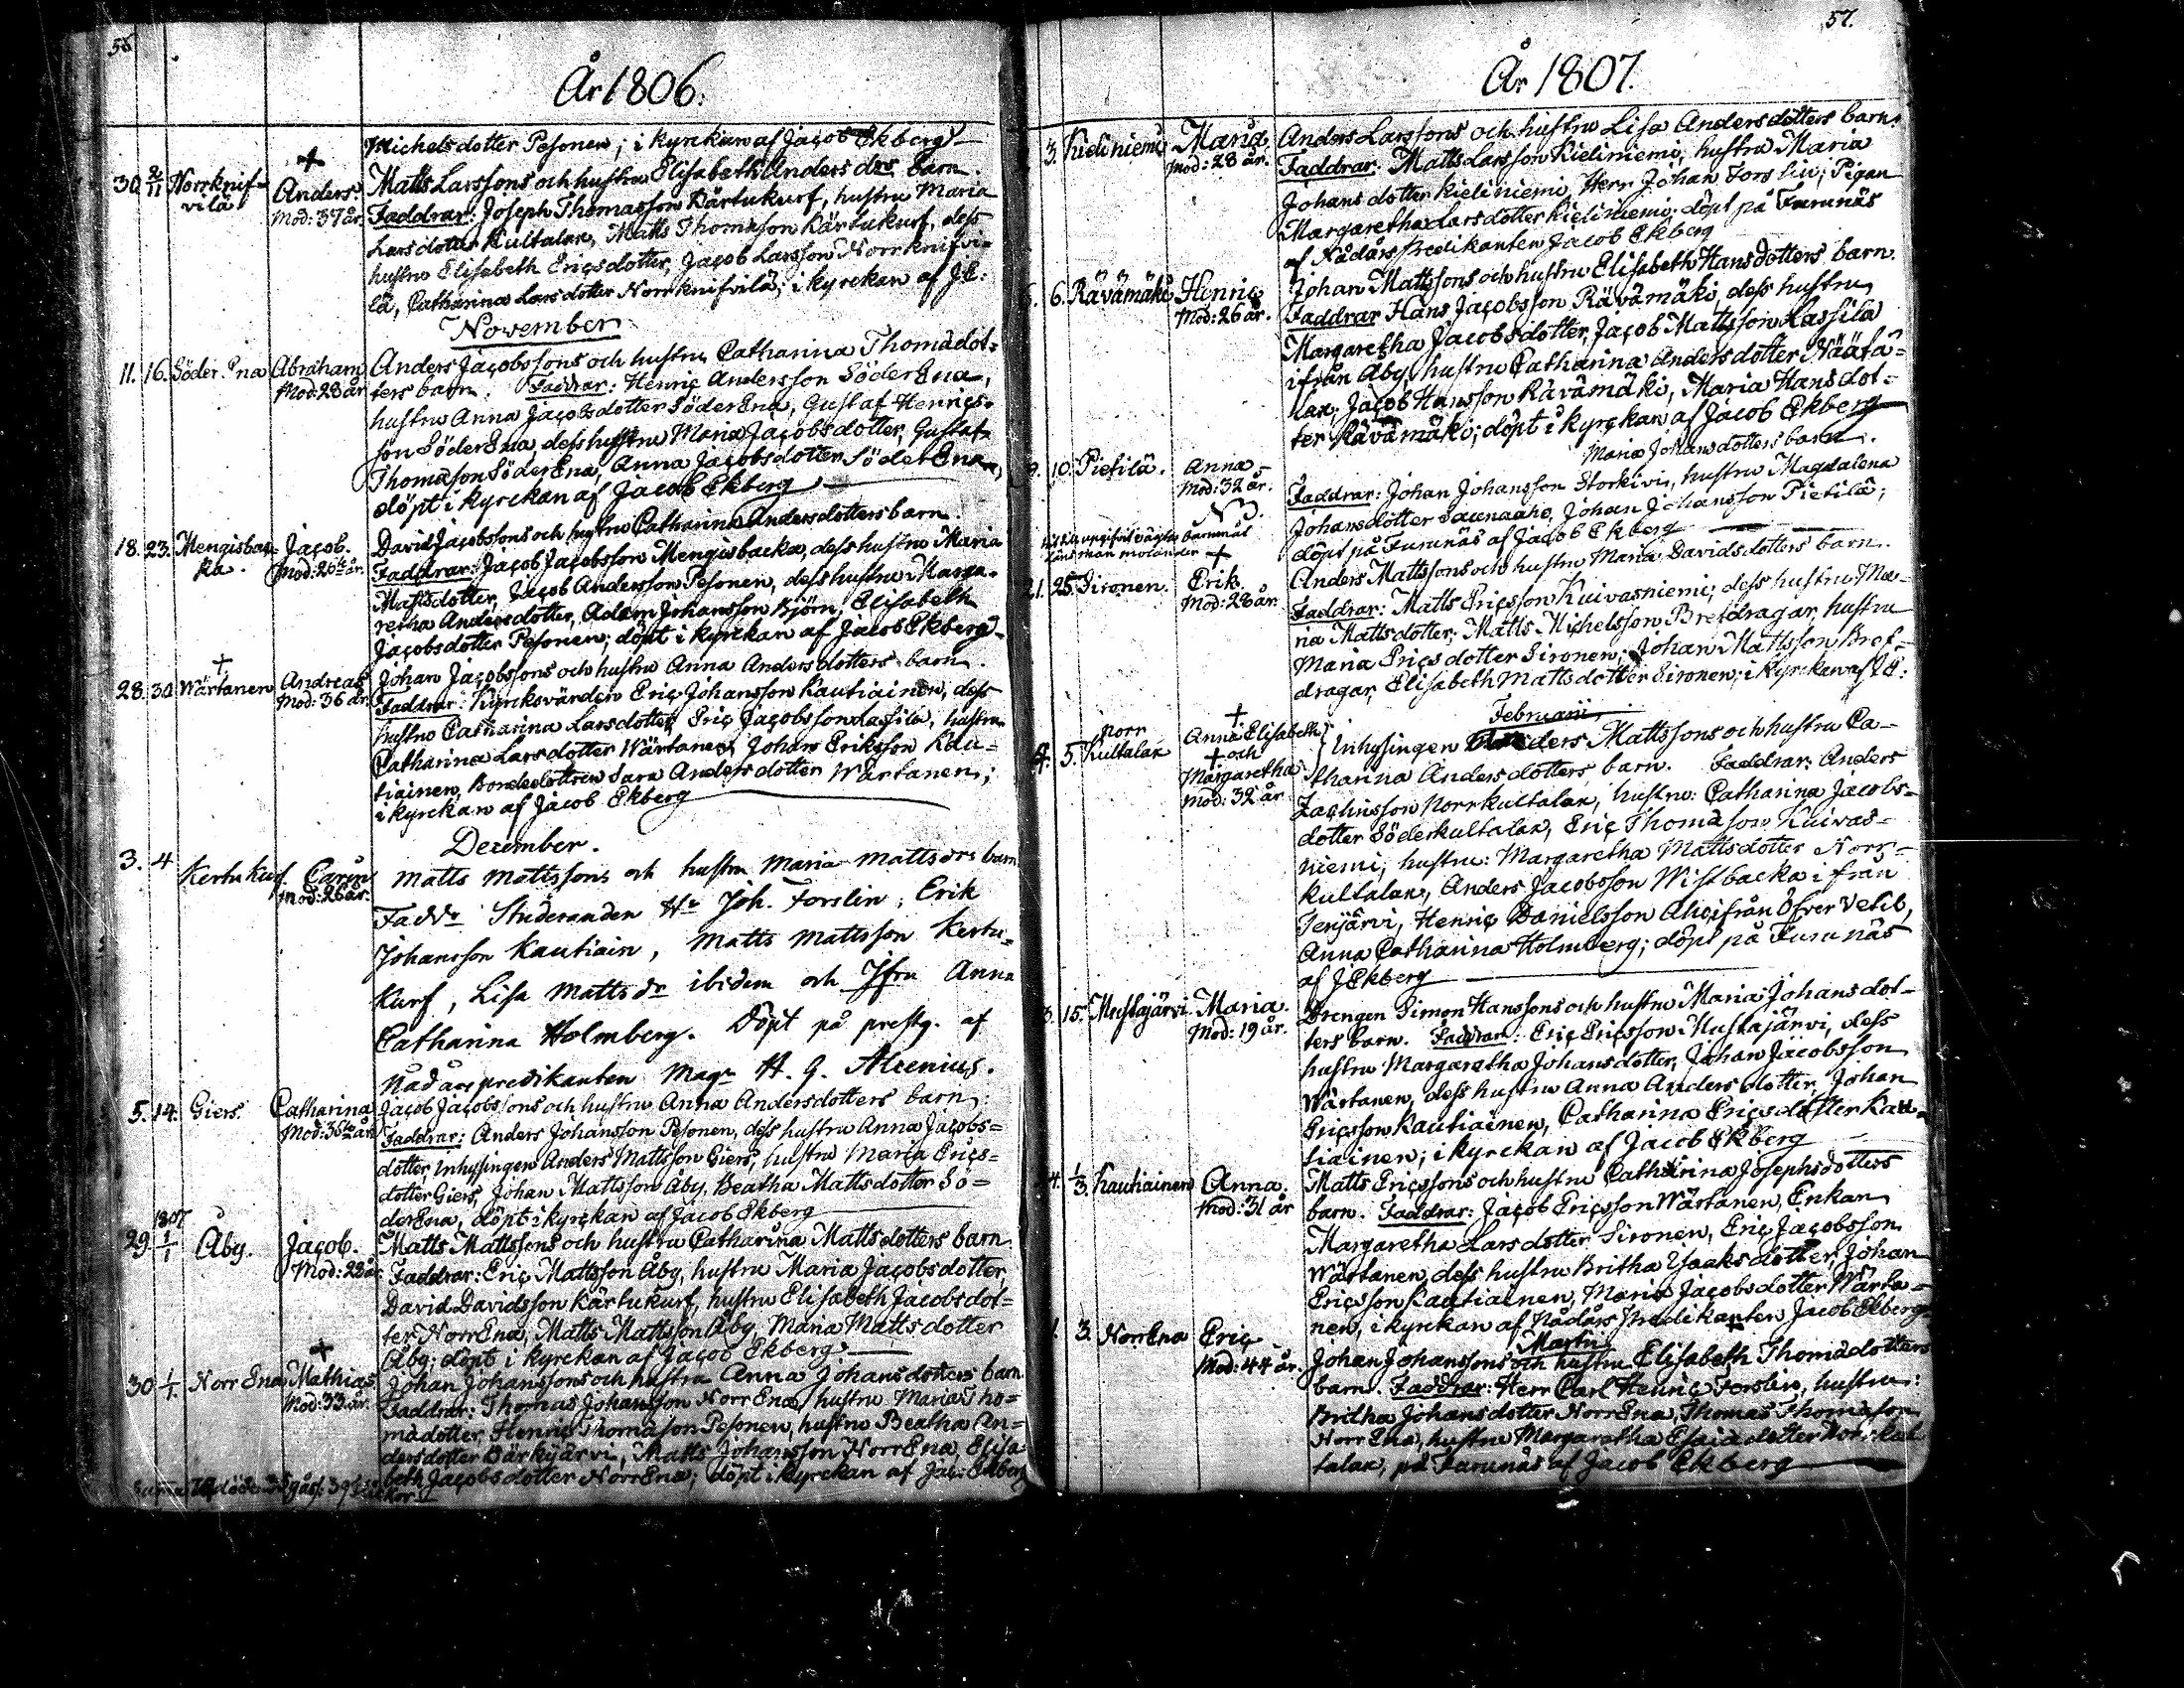 56
År 1806.
Michelsdotter Pesonen; i kyrckan af Jacob Ekberg
30. 2/11 Norrknif= Anders. Matts Larssons och hustru Elisabeth Anders drs barn.
vilä Mod: 37 år. Faddrar: Joseph Thomasson Kärtukurf, hustru Maria
Larsdotter Kultalax, Matts Thomasson Kärtukurf, dess
hustru Elisabeth Ericsdotter, Jacob Larsson Norrknifvi=
lä, Catharina Larsdotter Norrknifvilä; i kyrckan af J E:
November
11. 16. Söder Ena Abraham Anders Jacobssons och hustru Catharina Thomädot=
Mod: 28 år ters barn. Faddrar: Henric Andersson Söder Ena,
hustru Anna Jacobsdotter Söder Ena, Gustaf Henrics=
son Söder Ena, dess hustru Maria Jacobsdotter, Gustaf
Thomasson Söder Ena, Anna Jacobsdotter Söder Ena,
döpt i kyrckan af Jacob Ekberg
18. 23. Mengisbac= Jacob. David Jacobssons och hustru Catharina Andersdotters barn.
ka. Mod: 26 år. Faddrar: Jacob Jacobsson Mengisbacka, dess hustru Maria
Mattsdotter, Jacob Andersson Pesonen, dess hustru Marga=
retha Andersdotter, Adam Johansson Björn, Elisabeth
Jacobsdotter Pesonen; döpt i kyrckan af Jacob Ekberg
28. 30. Wärtanen Andreas Johan Jacobssons och hustru Anna Andersdotters barn.
Mod: 36 år. Faddrar: Kyrcksvärden Eric Johansson Kautiainen, dess
hustru Catharina Larsdotter, Eric Jacobsson Lassila, hustru
Catharina Larsdotter Wärtanen, Johan Eriksson Kau=
tiainen, Bondedottren Sara Andersdotter Wärtanen;
i kyrckan af Jacob Ekberg
December.
3. 4 Kertukurf. Carin Matts Mattssons och hustru Maria Mattsdrs barn
Mod: 26 år. Faddr Studeranden Hr Joh. Forslin; Erik
Johansson Kautiain, Matts Mattsson Kertu=
kurf, Lisa Mattsdr ibidem och Jfru Anna
Catharina Holmberg. Döpt på prestg. af
Nådårspredikanten Magr H. G. Alcenius.
5. 14. Giers. Catharina Jacob Jacobssons och hustru Anna Andersdotters barn:
Mod: 36 år Faddrar: Anders Johansson Pesonen, dess hustru Anna Jacobs=
dotter, Inhysingen Anders Mattsson Giers, hustru Maria Erics=
dotter Giers, Johan Mattsson Åby, Beatha Mattsdotter Sö=
der Ena, döpt i kyrckan af Jacob Ekberg
1807
29 1/1 Åby. Jacob. Matts Mattssons och hustru Catharina Mattsdotters barn
Mod: 28 år Faddrar: Eric Mattsson Åby, hustru Maria Jacobsdotter,
David Davidsson Kärtukurf, hustru Elisabeth Jacobsdot=
ter Norr Ena, Matts Mattsson Åby, Maria Mattsdotter
Åby; döpt i kyrckan af Jacob Ekberg
30 1/1. Norr Ena Mathias Johan Johanssons och hustru Anna Johansdotters barn.
Mod: 33 år. Faddrar: Thomas Johansson Norr Ena, hustru Maria Tho=
mädotter, Henric Thomasson Pesonen, hustru Beatha An=
dersdotter Särkijärvi, Matts Johansson Norr Ena, Elisa=
beth Jacobsdotter Norr Ena; döpt i kyrckan af Jac: Ekberg
57.
År 1807.
3. Kieliniemi Maria Anders Larssons och hustru Lisa Andersdotters barn.
Mod: 28 år. Faddrar: Matts Larsson Kieliniemi, hustru Maria
Johansdotter Kieliniemi, Herr Johan Forslin; Pigan
Margaretha Larsdotter Kieliniemi; döpt på Furunäs
af Nådårs predikanten Jacob Ekberg
6. Rävämäki Henric Johan Mattssons och hustru Elisabeth Hansdotters barn.
Mod: 26 år. Faddrar Hans Jacobsson Rävämäki, dess hustru
Margaretha Jacobsdotter, Jacob Mattsson Lassila
ifrån Åby, hustru Catharina Andersdotter Näätä=
lax, Jacob Hansson Rävämäki, Maria Hansdot=
ter Rävämäki; döpt i kyrckan af Jacob Ekberg
9. 10. Pietilä. Anna Maria Johansdotters barn.
Mod: 32 år. Faddrar: Johan Johansson Storkivi, hustru Magdalena
Johansdotter Saunaaho, Johan Johansson Pietilä;
döpt på Furunäs af Jacob Ekberg
länsman Molander
21. 25. Sironen. Erik. Anders Mattssons och hustru Maria Davidsdotters barn.
Mod: 28 år. Faddrar: Matts Ericsson Kuivasniemi; dess hustru Ma=
ria Mattsdotter; Matts Michelsson Brefdragar, hustru
Maria Ericsdotter Sironen; Johan Mattsson Bref=
dragar, Elisabeth Mattsdotter Sironen; i kyrckan af J E:
Februarii
4. 5. Norr Kultalax Anna Elisabeth Inhysingen Anders Mattssons och hustru Ca=
och Margaretha tharina Andersdotters barn. Faddrar: Anders
Mod: 32 år Zachrisson Norrkultalax, hustru: Catharina Jacobs=
dotter Söderkultalax, Eric Thomasson Kuivas=
niemi, hustru: Margaretha Mattsdotter Norr=
kultalax, Anders Jacobsson Wistbacka ifrån
Terijärvi, Henric Danielsson Aho ifrån Öfver Vetil,
Anna Catharina Holmberg; döpt på Furunäs
af J Ekberg
15. Mustajärvi Maria. Drengen Simon Hanssons och hustru Maria Johansdot=
Mod: 19 år. ters barn. Faddrar: Eric Ericsson Mustajärvi, dess
hustru Margaretha Johansdotter, Johan Jacobsson
Wärtanen, dess hustru Anna Andersdotter, Johan
Ericsson Kautiainen, Catharina Ericsdotter Kau=
tiainen; i kyrckan af Jacob Ekberg
1/3. Kautiainen Anna. Matts Ericssons och hustru Catharina Josephsdotters
Mod: 31 år barn. Faddrar: Jacob Ericsson Wärtanen, Enkan
Margaretha Larsdotter Sironen, Eric Jacobsson
Wärtanen, dess hustru Britha Isaaksdotter, Johan
Ericsson Kautiainen, Maria Jacobsdotter Wärta=
nen, i kyrckan af Nådårs predikanten Jacob Ekberg
Martii
3. Norr Ena Eric Johan Johanssons och hustru Elisabeth Thomädotters
Mod: 44 år. barn. Faddrar: Herr Carl Henric Forslin, hustru:
Britha Johansdotter Norr Ena, Thomas Thomasson
Norr Ena, hustru Margaretha Esaiædotter Norrkul
talax, på Furunäs af Jacob Ekberg